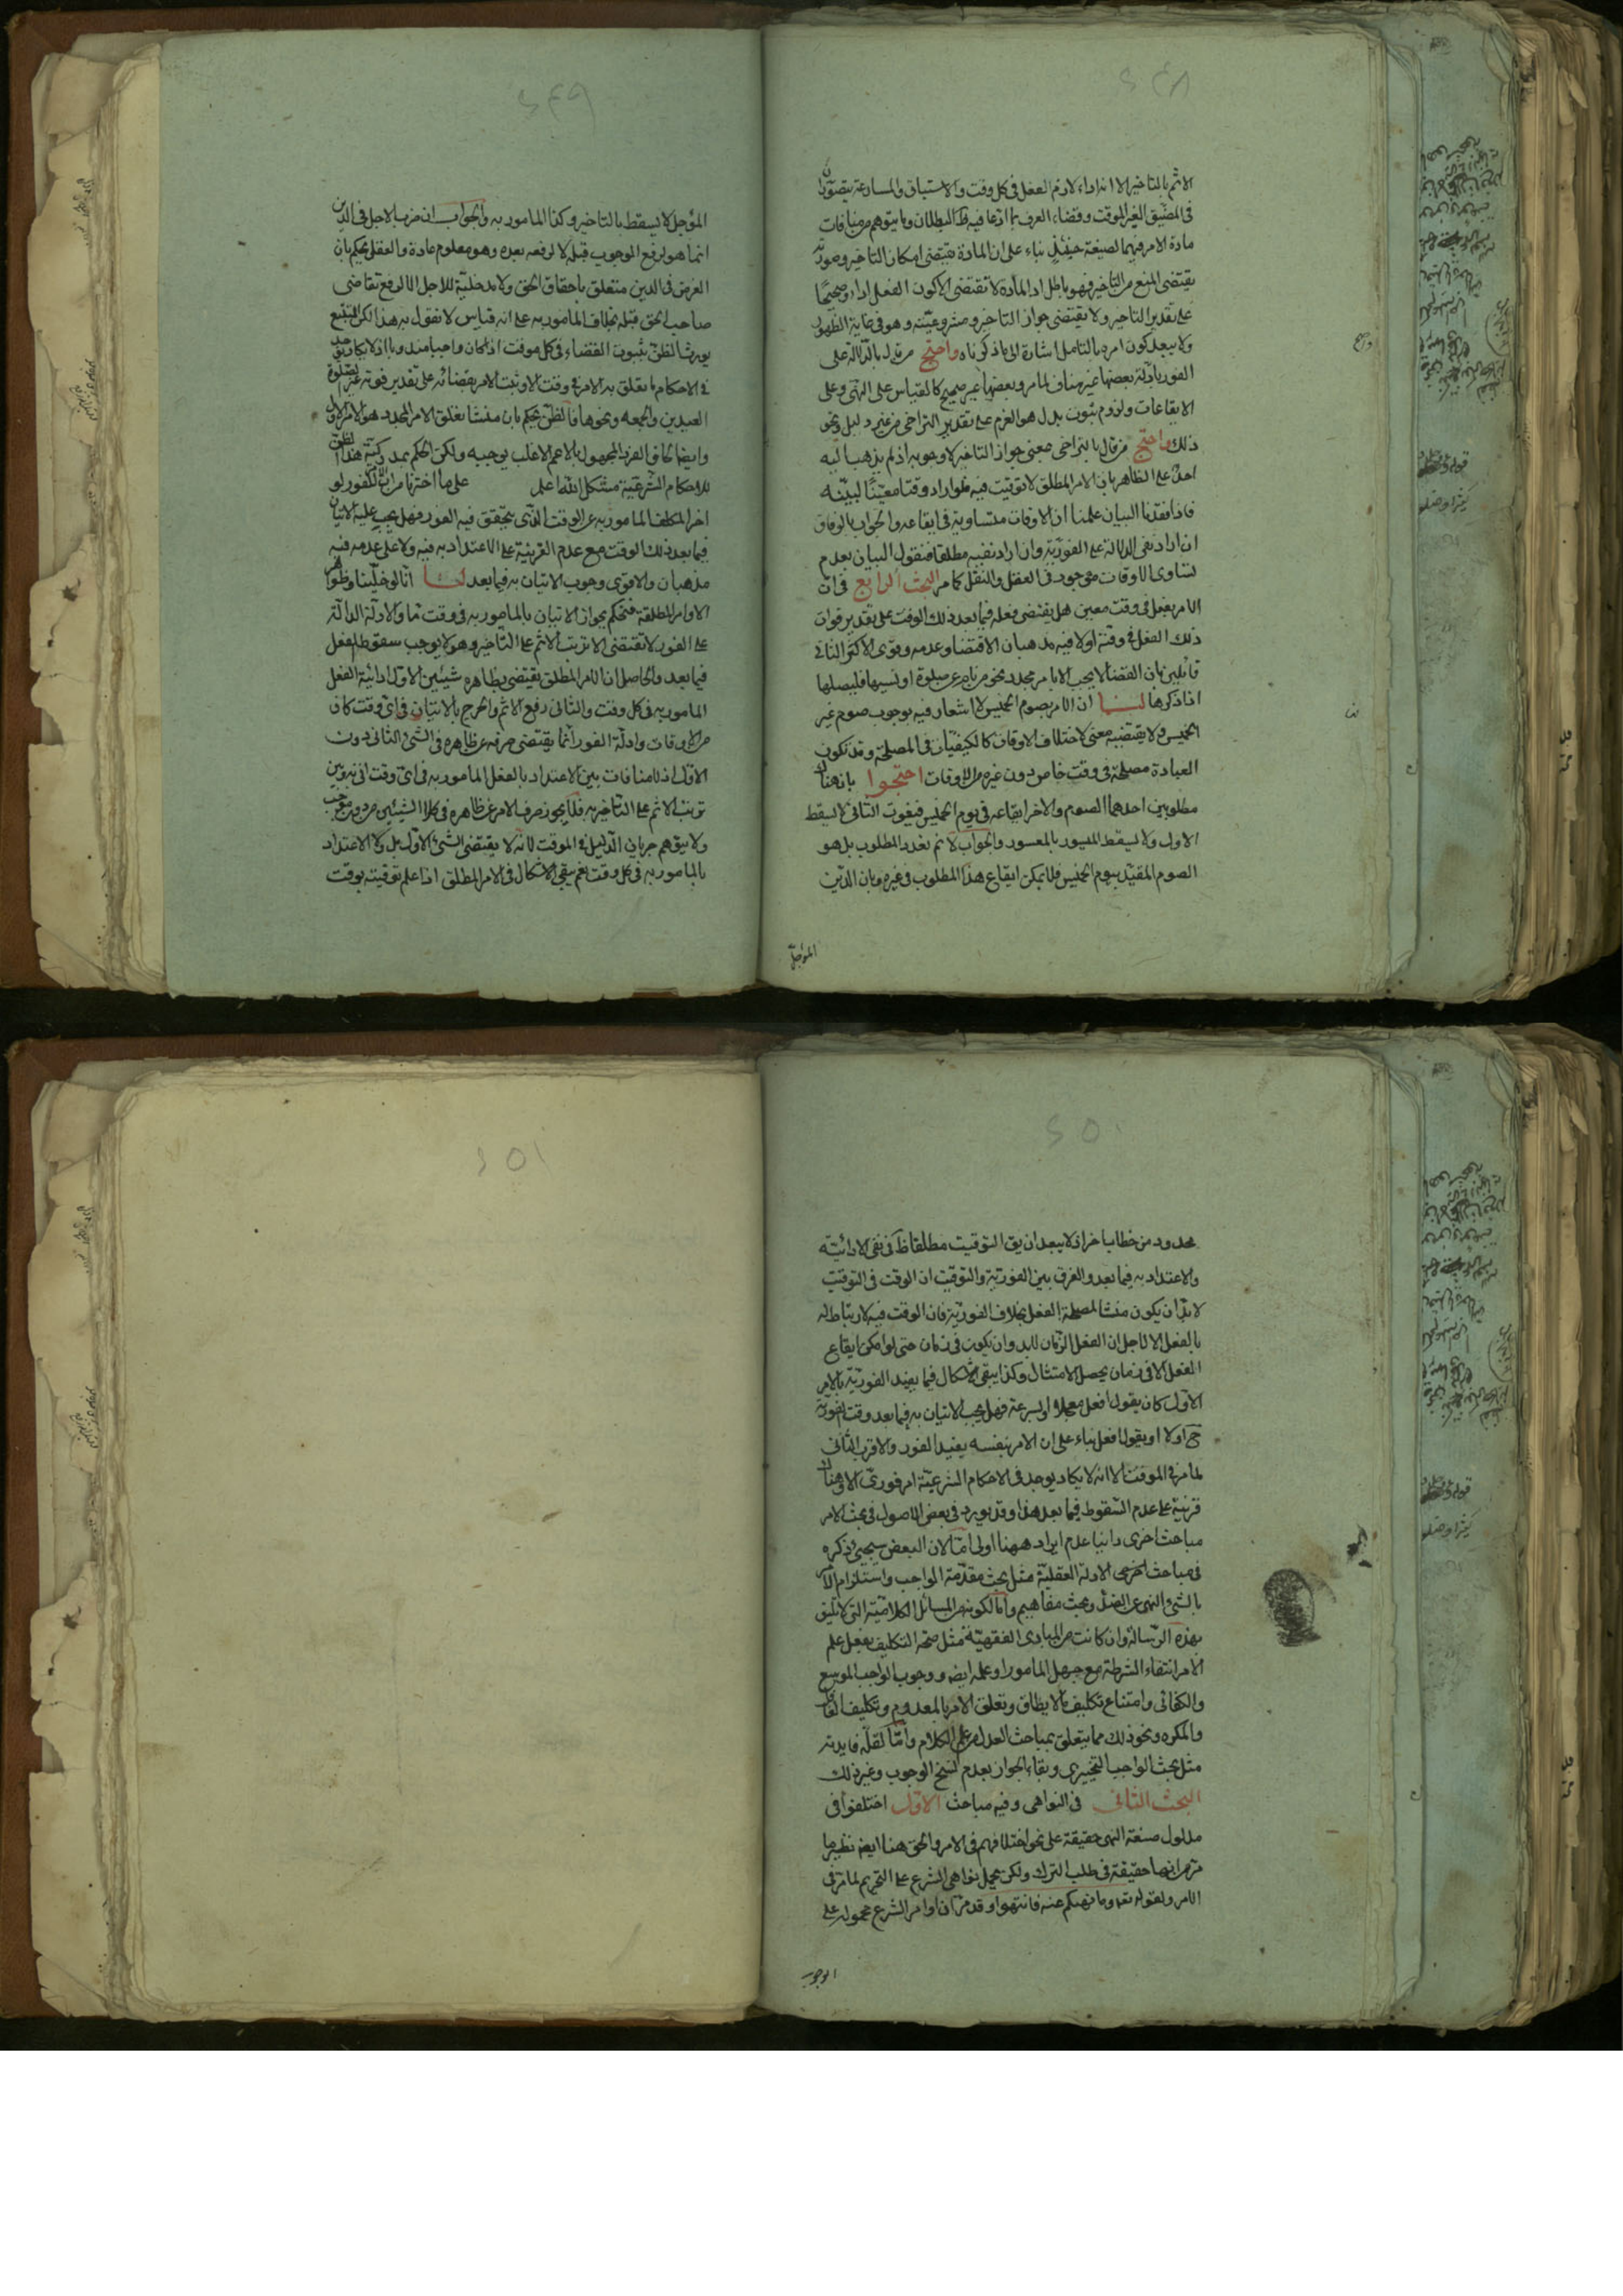 ٢٤٨
الاثم بالتاخير الا انه اداء لازم الفعل فى كل وقت والاستباق والمسارعة يتصوران
فى المضيق الغير الموقت وقضاء العرف بما ادعا فيه ظ البطلان وما يتوهم من منافات
مادة الامر فيهما لصيغة حينئذ بناء على ان المادة تقتضى امكان التاخير وصورته
يقتضى المنع من التاخير فهو باطل اذ المادة لا تقتضى الا كون الفعل اداء وصحيحا
على تقدير التاخير ولا يقتضى جواز التاخير ومشروعيته وهو فى غاية الظهور
ولا يبعد كون امره بالتامل اشارة الى ما ذكرناه واحتج من قال بالدلالة على
الفور بادلة بعضها غير مناف لما مر وبعضها غير صحيح كالقياس على النهى وعلى
الايقاعات ولزوم ثبوت بدل هو العزم على تقدير التراخى من غير دليل ونحو
ذلك واحتج من قال بالتراخى بمعنى جواز التاخير لا وجوبه اذ لم يذهب اليه
احد على الظاهر بان الامر المطلق لا توقيت فيه فلو اراد وقتا معينا لبينه
فاذا فقدنا البيان علمنا ان الاوقات متساوية فى ايقاعه والجواب بالوفاق
ان اراد نفى الدلالة على الفورية وان اراد نفيه مطلقا فنقول البيان بعدم
تساوى الاوقات موجود فى العقل والنقل كما مر البحث الرابع فى ان
الامر بفعل فى وقت معين هل يقتضى فعله فيما بعد ذلك الوقت على تقدير فوات
ذلك الفعل فى وقته اولا فيه مذهبان الاقتضا وعدمه وقوى الاكثر الثانى
قائلين بان القضا لا يجب الا بامر مجدد نحو من نام عن صلوة او نسيها فليصلها
اذا ذكرها لنا ان الامر بصوم الخميس لا اشعار فيه بوجوب صوم غير
الخميس ولا يقتضيه معنى لاختلاف الاوقات كالكيفيات فى المصلحة وقد تكون
العبادة مصلحة فى وقت خاص دون غيره من الاوقات احتجوا بان هناك
مطلوبين احدهما الصوم والاخر ايقاعه فى يوم الخميس فبفوت الثانى لا يسقط
الاول ولا يسقط الميسور بالمعسور والجواب لا نم تعدد المطلوب بل هو
الصوم المقيد بيوم الخميس فلا يمكن ايقاع هذا المطلوب فى غيره وبان الدين
المؤجل
٢٤٩
المؤجل لا يسقط بالتاخير وكذا المامور به والجواب ان ضرب الاجل فى الدين
انما هو لرفع الوجوب قبله لا لرفعه بعده وهو معلوم عادة والعقل يحكم بان
الغرض فى الدين متعلق باحقاق الحق ولا مدخلية للاجل الا لرفع تقاضى
صاحب الحق قبله بخلاف المامور به على انه قياس لا نقول به هذا لكن التتبع
يورث الظن بثبوت القضاء فى كل موقت اذا كان واجبا منذوبا اذ لا يكاد يوجد
فى الاحكام ما تعلق به الامر فى وقت الا وثبت الامر بقضائه على تقدير فوته غير صلوة
العيدين والجمعه ونحوها فالظن يحكم بان منشا تعلق الامر المجدد هو الامر الاول
وايضا الحاق الفرد المجهول بالاعم الاغلب يوجبه ولكن الحكم بمدركية هذا الظن
للاحكام الشرعية مشكل الله اعلم على ما اخترنا من الفور لو
اخر المكلف المامور به عن الوقت الذى يتحقق فيه الفور فهل يجب عليه الاتيان
فيما بعد ذلك الوقت مع عدم القرينة على الاعتداد به فيه ولا على عدمه فيه
مذهبان والاقوى وجوب الاتيان به فيما بعد لنا انا لو خلينا وظواهر
الاوامر المطلقة فنحكم بجواز الاتيان بالمامور به فى وقت ما والادلة الدالة
على الفور لا تقتضى الا ترتب الاثم على التاخير وهو لا يوجب سقوط الفعل
فيما بعد والحاصل ان الامر المطلق يقتضى بظاهره شيئين الاول ادائية الفعل
المامور به فى كل وقت والثانى رفع الاثم والحرج بالاتيان فى اى وقت كان
من الاوقات وادلة الفور انما يقتضى صرفه عن ظاهره فى الشئ الثانى دون
الاول اذ لا منافات بين الاعتداد بالفعل المامور به فى اى وقت اتى به وبين
ترتب الاثم على التاخير به فلا يجوز صرف الامر عن ظاهره فى كلا الشيئين من دون موجب
ولا يتوهم جريان الدليل فى الموقت لانه لا يقتضى الشئ الاول بل ولا الاعتداد
بالمامور به فى كل وقت نعم يبقى الاشكال فى الامر المطلق اذا علم توقيته بوقت
٢٥٠
محدود من خطاب اخر اذ لا يبعد ان يق التوقيت مطلقا ظ فى نفى الادائية
والاعتداد به فيما بعد والفرق بين الفورية والتوقيت ان الوقت فى التوقيت
لابد ان يكون منشا لمصلحة الفعل بخلاف الفورية فان الوقت فيه لا ارتباط له
بالفعل الا لاجل ان الفعل الزمان لابد وان يكون فى زمان حتى لو امكن ايقاع
الفعل لا فى زمان يحصل الامتثال وكذا يبقى الاشكال فيما يفيد الفورية بالامر
الاول كان يقول افعل معجلا او بسرعة فهل يجب الاتيان به فيما بعد وقت الفورية
ح اولا او يقول افعل بناء على ان الامر بنفسه يفيد الفور والاقرب الثانى
لما مر فى الموقت الا انه لا يكاد يوجد فى الاحكام الشرعية امر فورى الا وهناك
قرينة على عدم السقوط فيما بعد هذا وقد يورد فى بعض الاصول فى بحث الامر
مباحث اخرى رايناعدم ايراد ههنا اولى اما لان البعض سيجئ ذكره
فى مباحث اخرى الادلة العقلية مثل بحث مقدمة الواجب واستلزام الامر
بالشئ النهى عن الضد وبحث مفاهيم واما لكونه من المسائل الكلامية التى لا تليق
بهذه الرسالة وان كانت من المبادى الفقهية مثل صحة التكليف بفعل علم
الامر انتفاء الشرط منه مع جهل المامور او علمه ايض ووجوب الواجب الموسع
والكفائى وامتناع تكليف مالا يطاق وتعلق الامر بالمعدوم وتكليف الغافل
والمكره ونحو ذلك مما يتعلق بمباحث العدل من علم الكلام واما لقلة فايدته
مثل بحث الواجب التخييرى وبقاء الجواز بعدم نسخ الوجوب وغير ذلك
البحث الثانى فى النواهى وفيه مباحث الاول اختلفوا فى
مدلول صيغة النهى حقيقة على نحو اختلافهم فى الامر والحق هنا ايض نظير ما
مر من انها حقيقة فى طلب الترك ولكن يحمل نواهى الشرع على التحريم لما مر فى
الامر ولقوله تعه وما نهيكم عنه فانتهوا وقد مر ان اوامر الشرع محمولة على
الوجوب
٢٥١